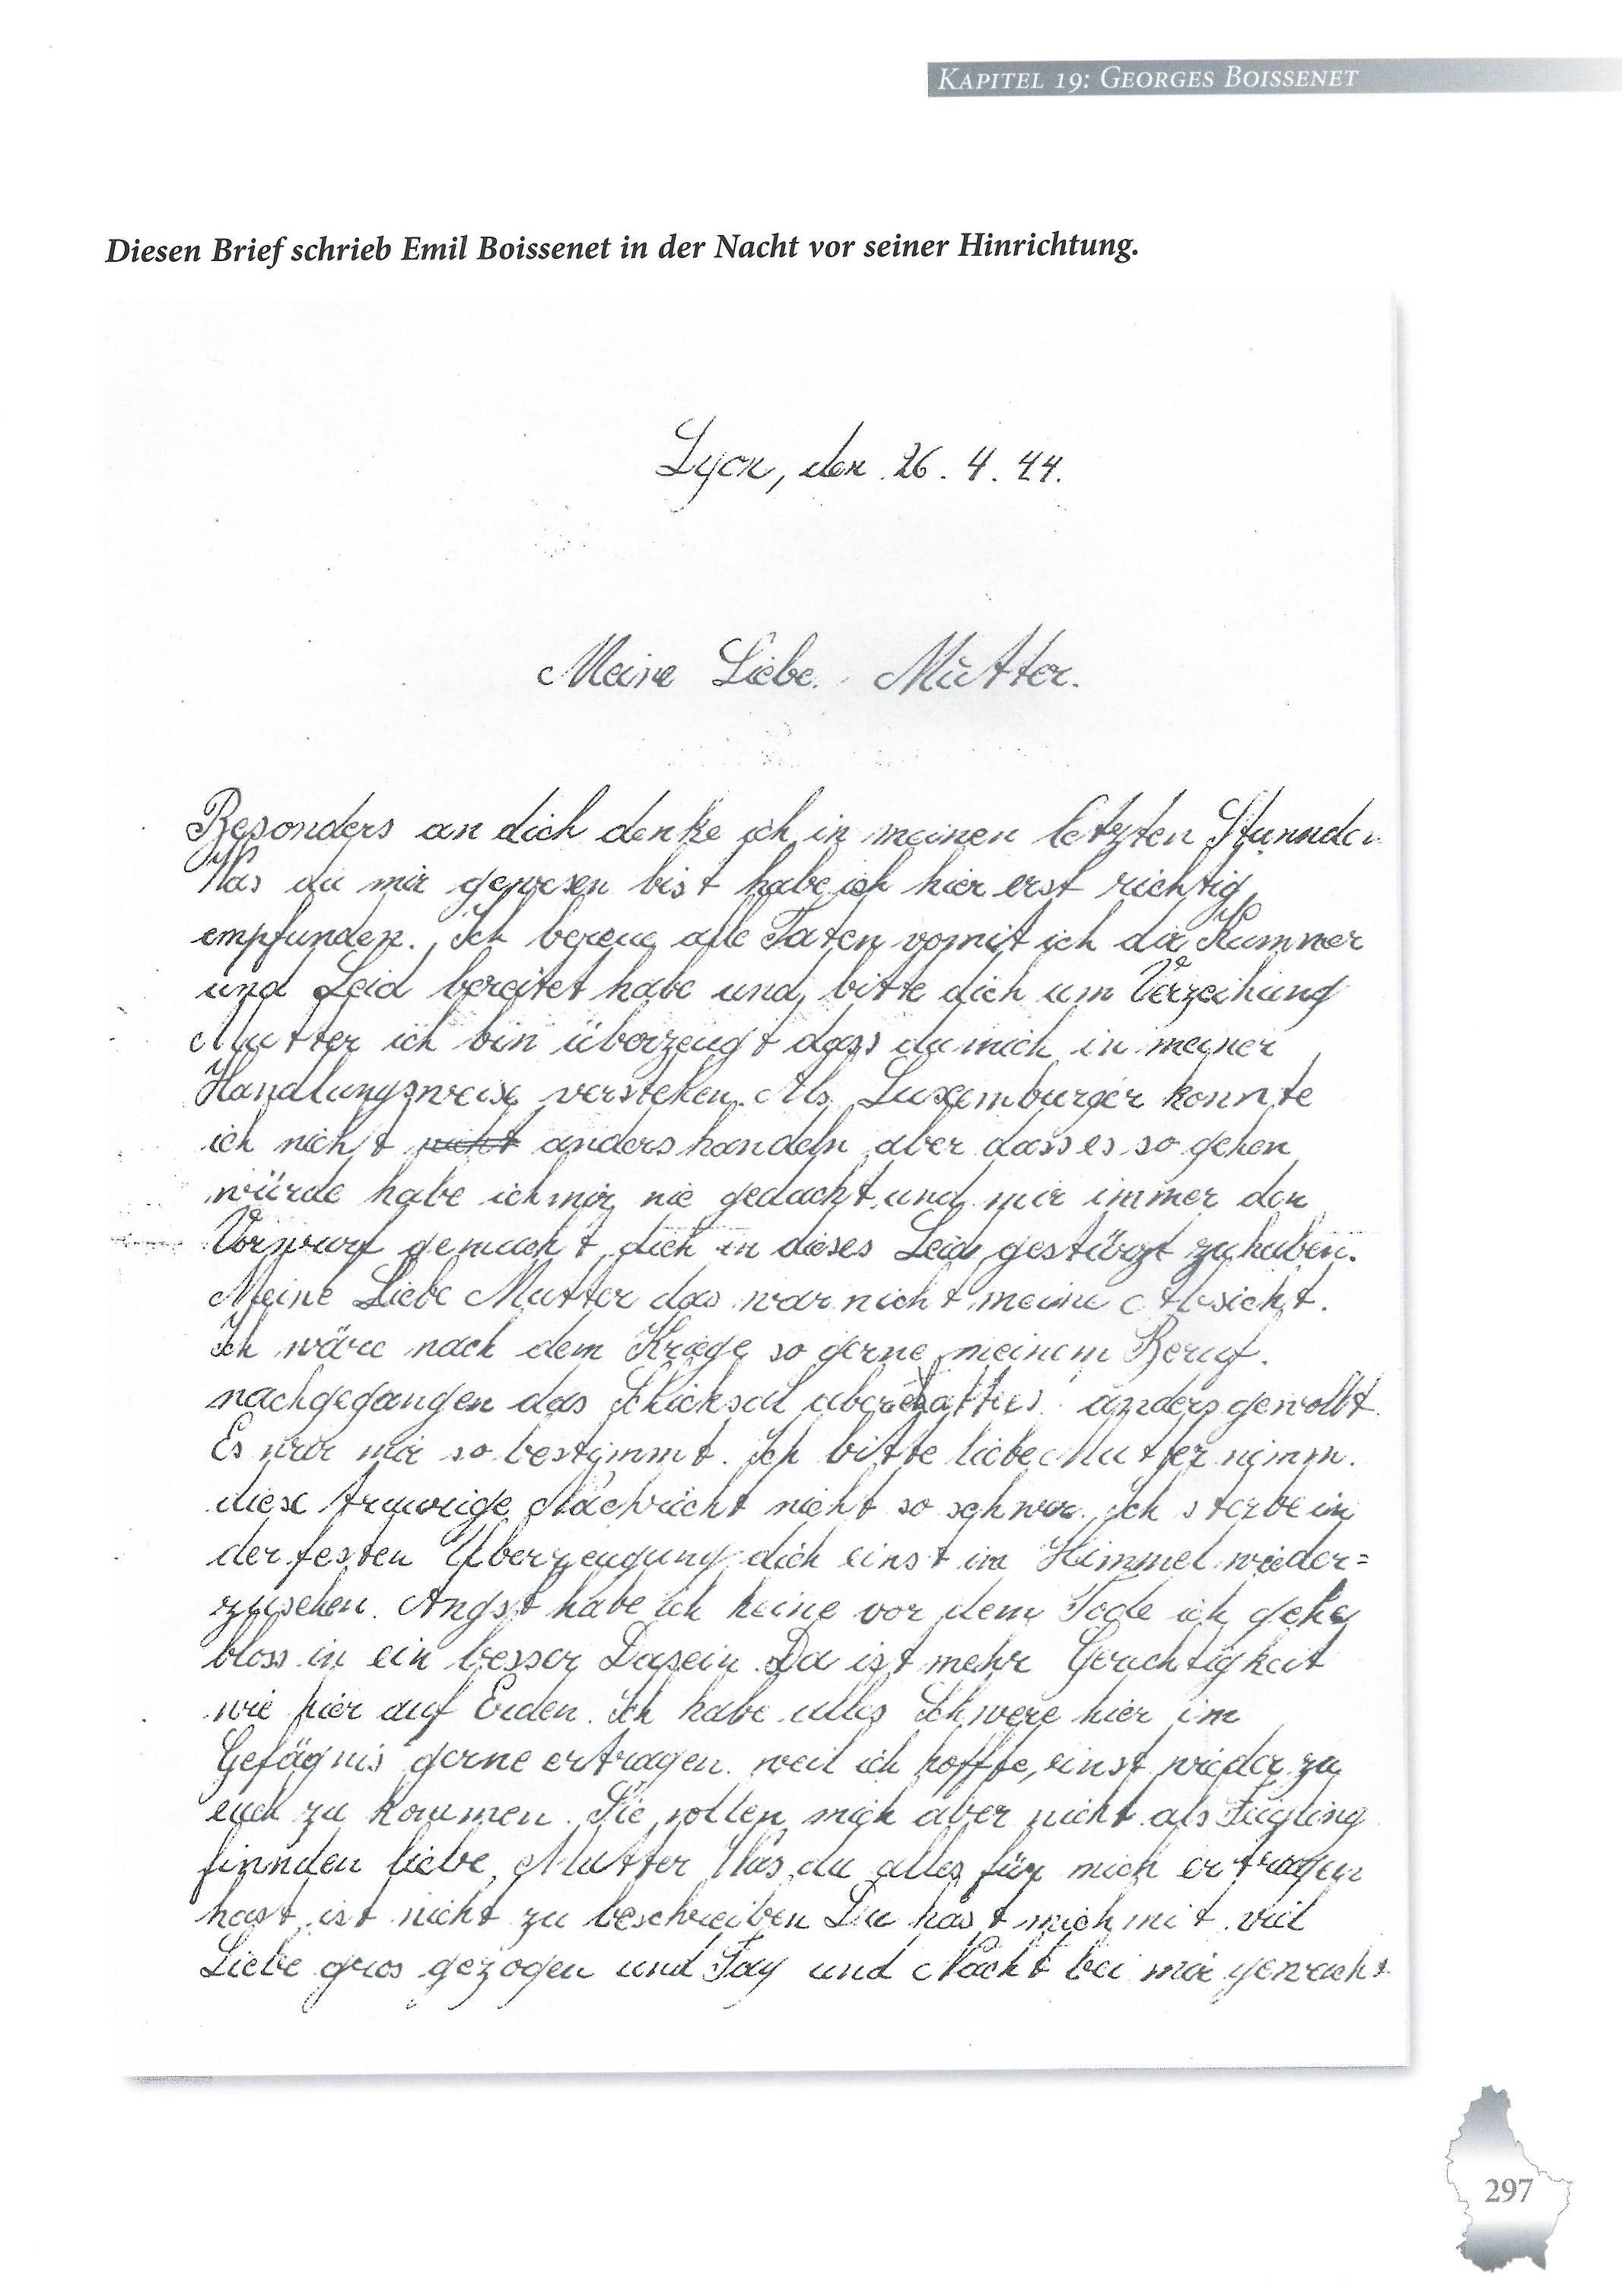 KAPITEL 19: GEORGES BOISSENET
Diesen Brief schrieb Emil Boissenet in der Nacht vor seiner Hinrichtung.
Lyon, den 26. 4. 44.
Meine Liebe Mutter.
Besonders an dich denke ich in meinen letzten Stunnden
Was du mir gewesen bist habe ich hier erst richtig
empfunden. Ich bereue alle Taten womit ich dir Kummer
und Leid bereitet habe und bitte dich um Verzeihung
Mutter ich bin überzeugt dass du mich in meiner
Handlungsweise verstehen. Als Luxemburger konnte
ich nicht nicht anders handeln aber dass es so gehen
würde habe ich mir nie gedacht und mir immer den
Vorwurf gemacht dich in dieses Leid gestürzt zu haben.
Meine Liebe Mutter das war nicht meine Absicht.
Ich wäre nach dem Kriege so gerne meinem Beruf.
nachgegangen das Schicksal aber hat es anders gewollt.
Es war mir so bestimmt. Ich bitte liebe Mutter nimm.
diese traurige Nachricht nicht so schwer. Ich sterbe in
der festen Überzeugung dich einst im Himmel wieder=
zusehen. Angst habe ich keine vor dem Tode ich gehe
bloss in ein besser Dasein. Da ist mehr Gerechtigkeit
wie hier auf Erden. Ich habe alles Schwere hier im
Gefägnis gerne ertragen. weil ich hoffte, einst wieder zu
euch zu kommen. Sie sollen mich aber nicht als Feigling
finnden liebe Mutter Was du alles für mich ertragen
hast, ist nicht zu beschreiben Du hast mich mit viel
Liebe gros gezogen und Tag und Nacht bei mir gewacht
297